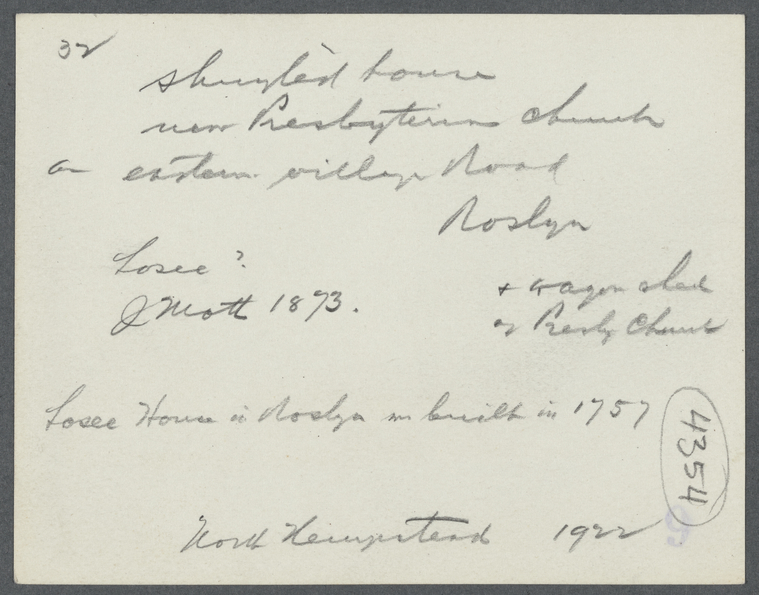 32
shingled house
near Presbyterian church
on eastern village Road
Roslyn
Losee ?
J Mott 1873.
+ wagon shed
of Presby Church
Losee House in Roslyn was built in 1757
4354
North Hempstead 1922
9